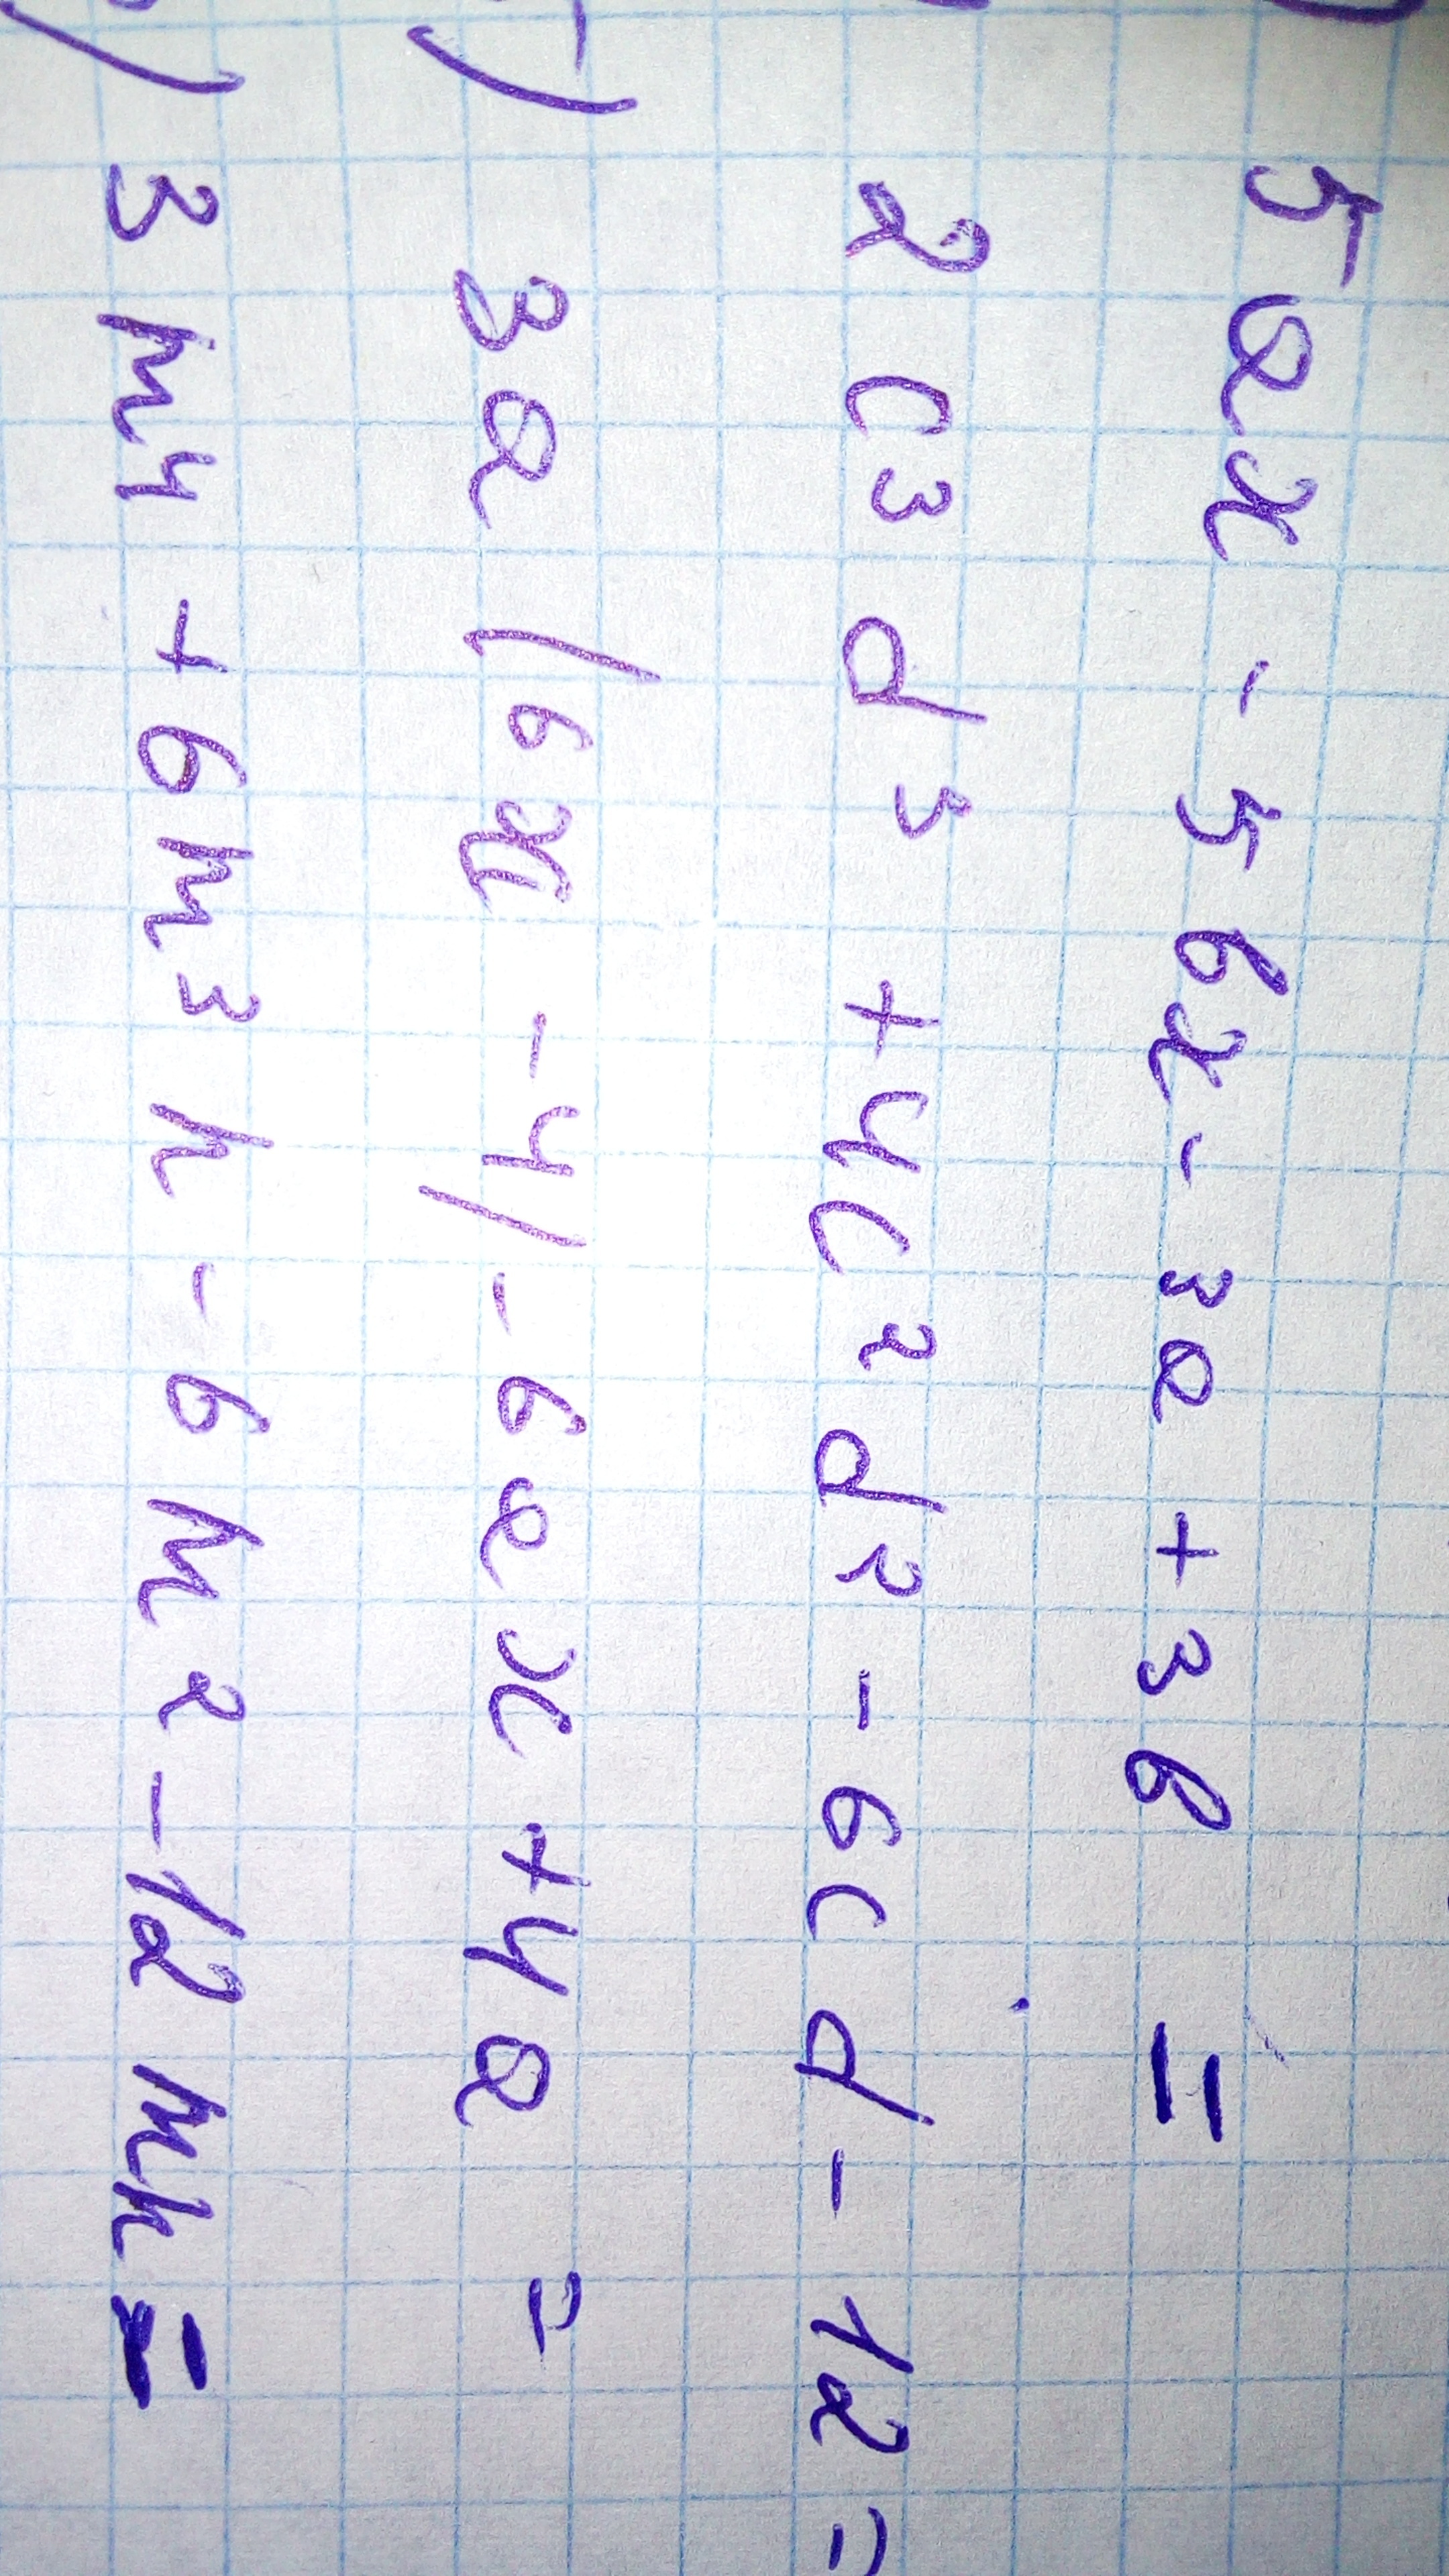 ) 5ax - 5bx - 3a + 3b =
2c³d³ + 4c²d² - 6cd - 12 =
5) 3a (6x - 4) - 6ax + 4a =
) 3m⁴ + 6m³n - 6m² - 12mn =